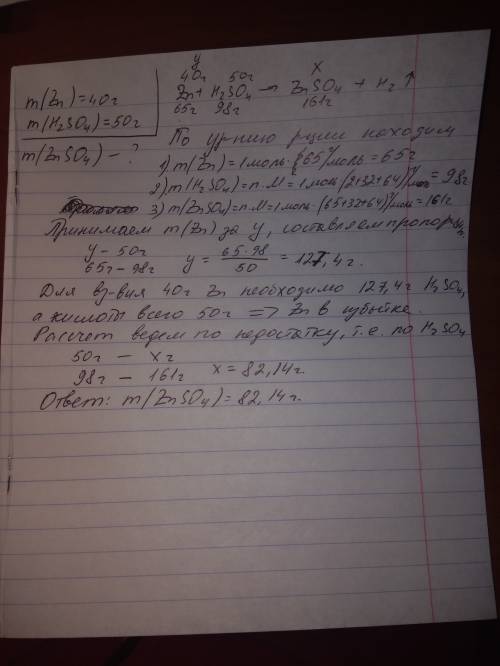 y x
40г 50г
m(Zn)=40г Zn + H₂SO₄ → ZnSO₄ + H₂↑
m(H₂SO₄)=50г 65г 98г 161г
m(ZnSO₄) - ? По ур-нию р-ции находим
1) m(Zn)=1моль·65г/моль=65г
2) m(H₂SO₄)=n·M=1моль·(2+32+64)г/моль=98г
3) m(ZnSO₄)=n·M=1моль·(65+32+64)г/моль=161г
Принимаем m(Zn) за y, составляем пропорц.
y - 50г
65г - 98г y = 65·98/50 = 127,4г.
Для вз-вия 40г Zn необходимо 127,4г H₂SO₄,
а кислоты всего 50г => Zn в избытке.
Расчет ведем по недостатку, т.е. по H₂SO₄
50г - xг
98г - 161г x = 82,14г.
Ответ: m(ZnSO₄)=82,14г.